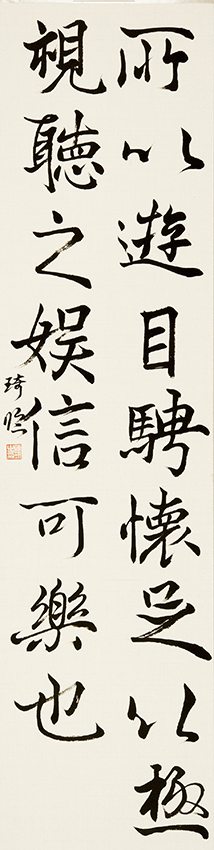 所以遊目騁懷足以極
視聽之娛信可樂也